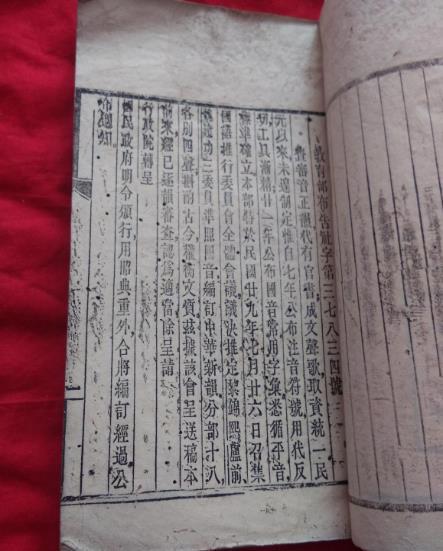 教育部布告社字第三七八三四號
查審音正韻代有官書成文聲歌取資統一民
元以來未遑制定惟自七年公布注音符號用代反
切工具漸精廿一年公布國音常用字彙悉循平音
標準確立本部特於民國廿九年七月廿六日召集
國語推行委員會全體會議議決推定黎錦熙盧前
魏建功三委員準照國音編訂中華新韻分部十八
各別四聲斟酌古今權衡文質茲據該會呈送稿本
前來經已逐韻審查認為適當除呈請
行政院轉呈
國民政府明令頒行用昭典重外合將編訂經過公
布